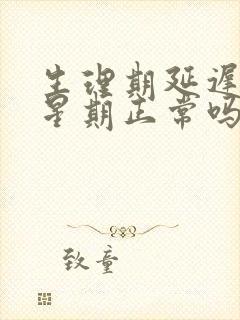 生理期延迟
星期正常吗
致童